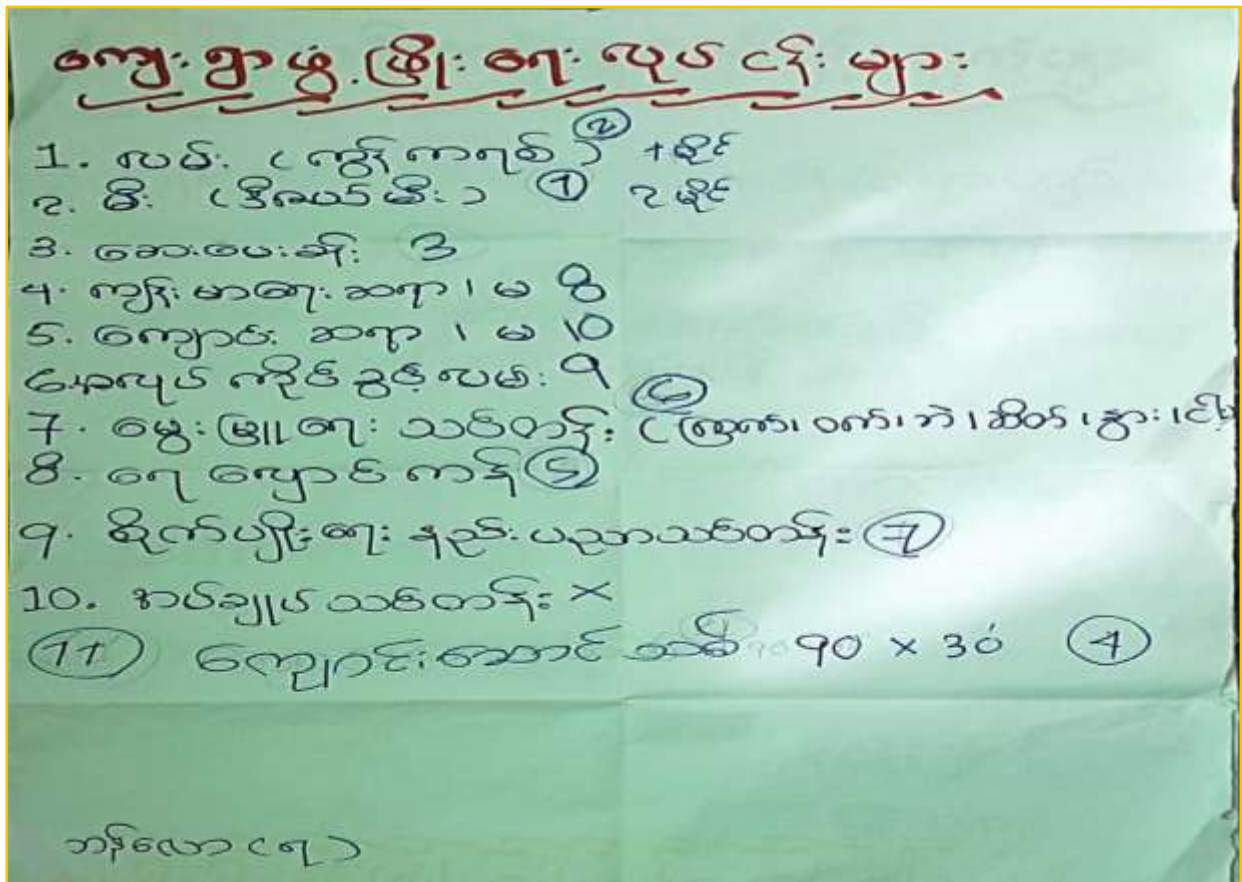 ကျေးရွာဖွံ့ဖြိုးရေးလုပ်ငန်းများ
1. လမ်း (ကွန်ကရစ်) ② 1 မိုင်
2. မီး (ဒီဇယ်မီး) ① 2 မိုင်
3. ဆေးပေးခန်း 3
4. ကျန်းမာရေးဆရာ၊မ 8
5. ကျောင်းဆရာ၊မ 10
လုပ်ကိုင်ခွင့်လမ်း 9
7. မွေးမြူရေးသင်တန်း ⑥ (ကြက်၊ ဝက်၊ ဘဲ၊ ဆိတ်၊ နွား၊ ငါး
8. ရေလှောင်ကန် ⑤
9. စိုက်ပျိုးရေးနည်းပညာသင်တန်း ⑦
10. အပ်ချုပ်သင်တန်း ×
⑪ ကျောင်းဆောင်သစ် 90 × 30 ④
ဘန်လော (ရ)